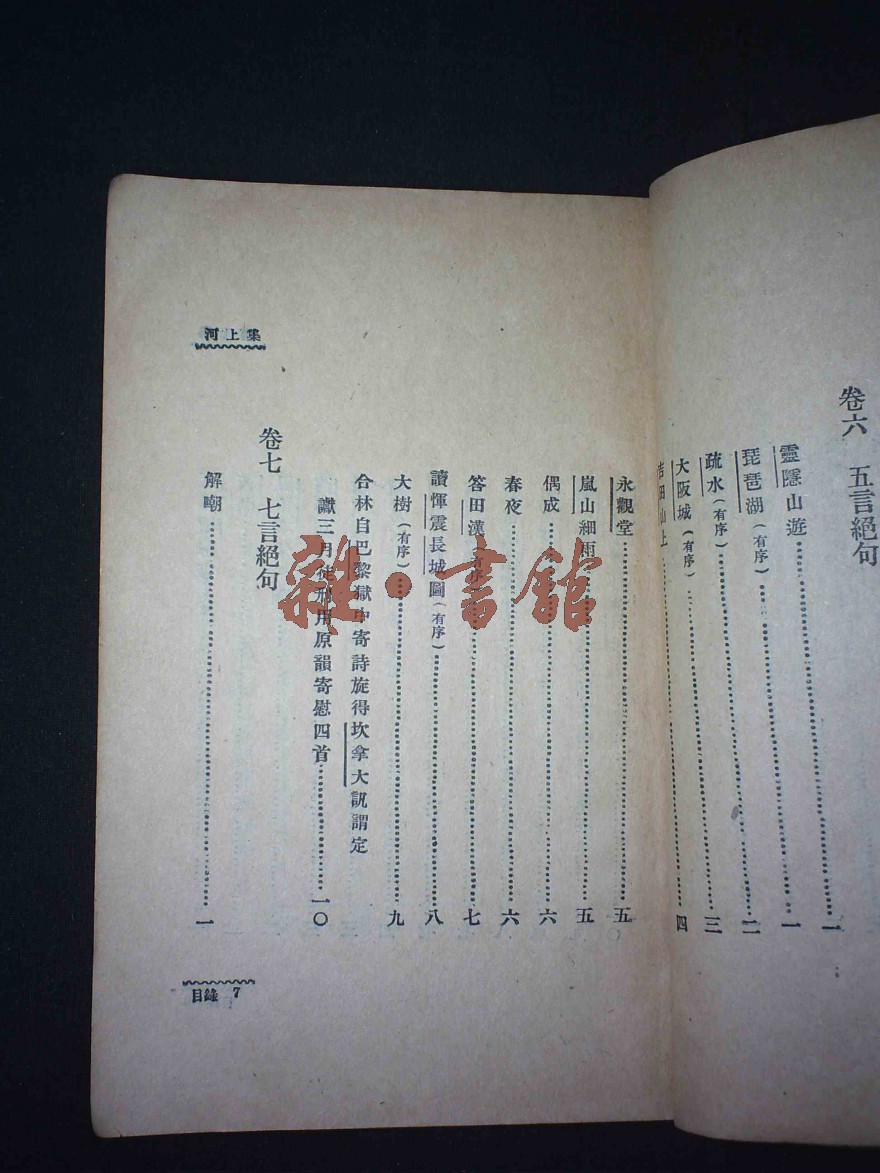 卷六　五言絕句
一
靈隱山遊……一
琵琶湖（有序）……二
疏水（有序）……三
大阪城（有序）……四
吉田山上
永觀堂……五
嵐山細雨……五
偶成……六
春夜……六
答田漢（有序）……七
讀惲震長城圖（有序）……八
大樹（有序）……九
合林自巴黎獄中寄詩旋得坎拿大訊謂定
讞三月徒刑用原韻寄慰四首……一〇
卷七　七言絕句
解嘲……一
河上集
目錄　7
雜·書館